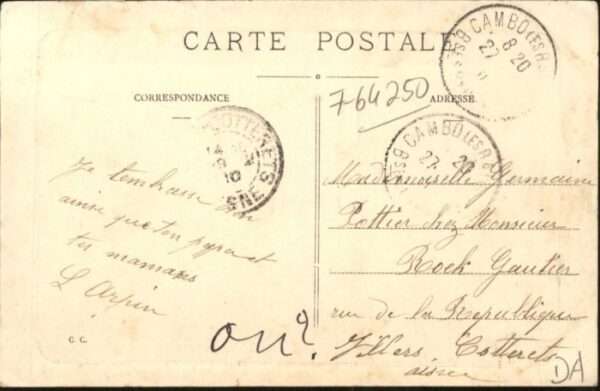 CARTE POSTALE
CAMBO LES B
8 20
27
764250
CORRESPONDANCE
ADRESSE
COTTERETS
10
CAMBO LES B
27 20
Je t'embrasse
ainsi que ton papa et
tes mamans
L Arpin
Mademoiselle Germaine
Pottier chez Monsieur
Rock Gautier
rue de la République
Villers Cotterets
aisne
C. C.
ou?
DA